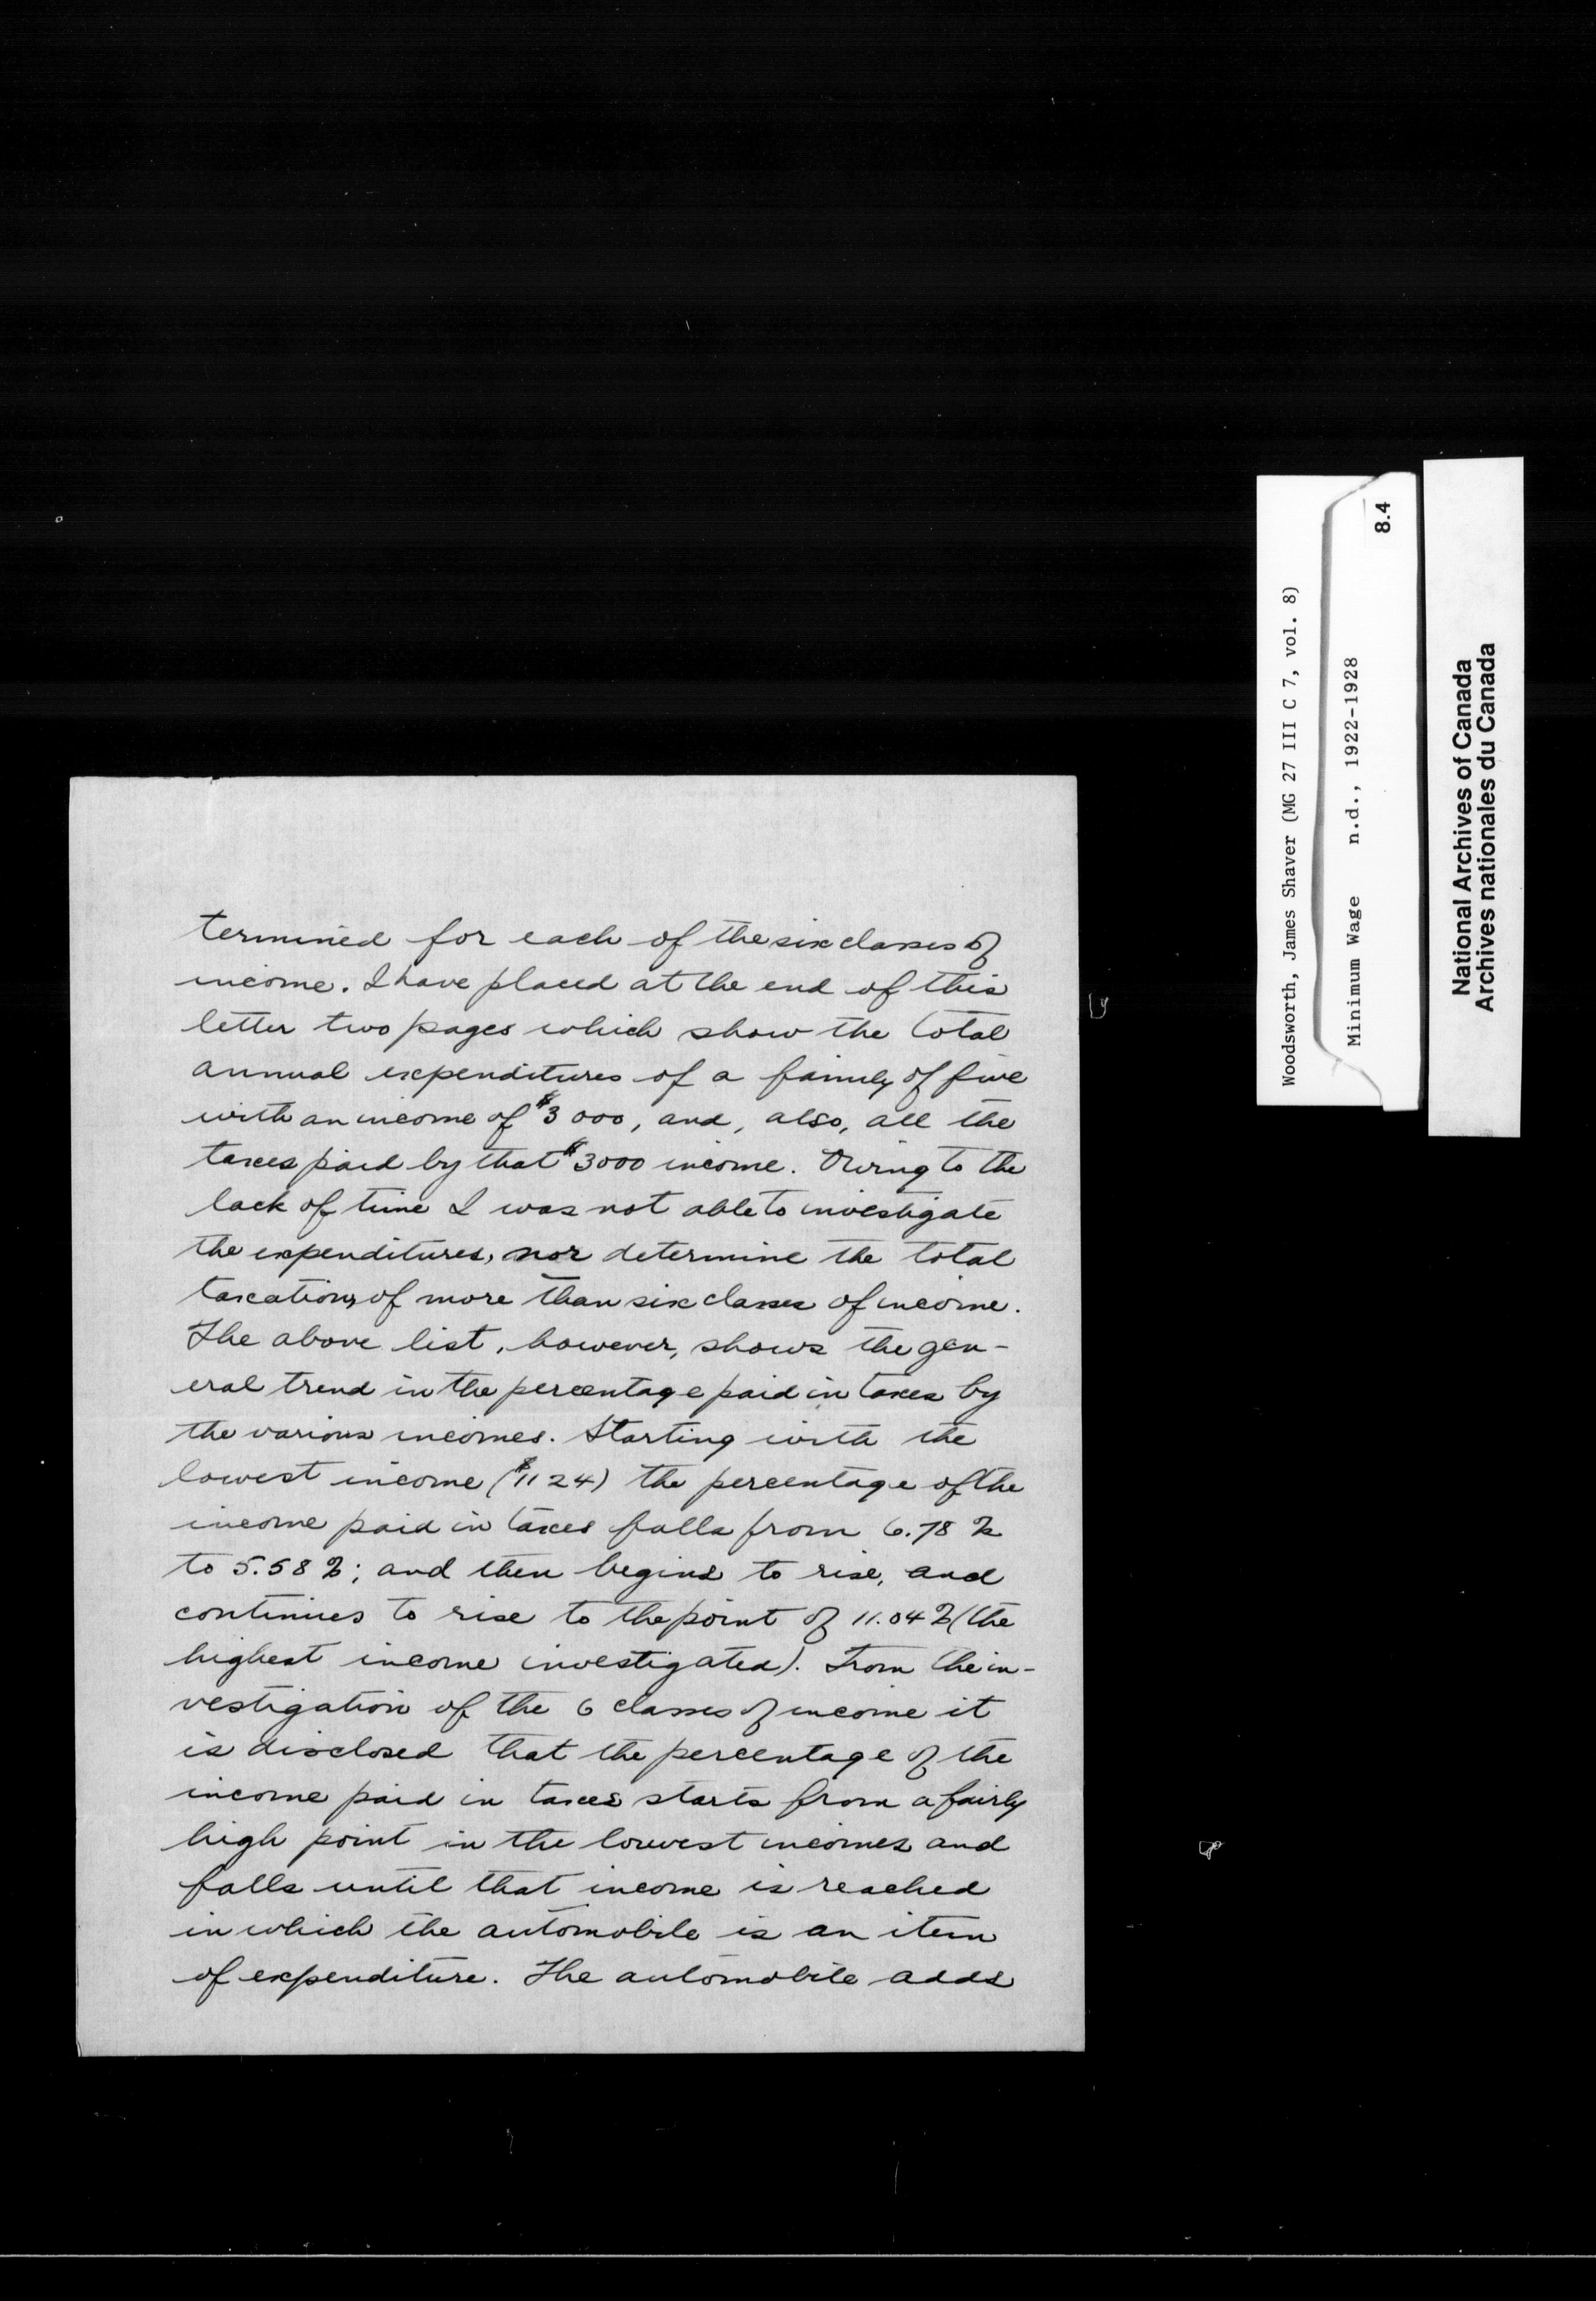 termined for each of the six classes of
income. I have placed at the end of this
letter two pages which show the total
annual expenditures of a family of five
with an income of $3000, and, also, all the
taxes paid by that $3000 income. Owing to the
lack of time I was not able to investigate
the expenditures, nor determine the total
taxations of more than six classes of income.
The above list, however, shows the gen-
eral trend in the percentage paid in taxes by
the various incomes. Starting with the
lowest income ($1124) the percentage of the
income paid in taxes falls from 6.78 %
to 5.58 %; and then begins to rise, and
continues to rise to the point of 11.04 % (the
highest income investigated). From the in-
vestigation of the 6 classes of income it
is disclosed that the percentage of the
income paid in taxes starts from a fairly
high point in the lowest incomes and
falls until that income is reached
in which the automobile is an item
of expenditure. The automobile adds
Woodsworth, James Shaver (MG 27 III C 7, vol. 8)
Minimum Wage n.d., 1922-1928
8.4
National Archives of Canada
Archives nationales du Canada